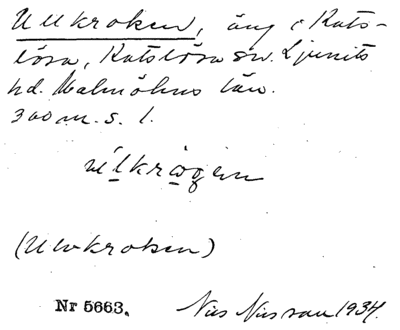 Ullkroken, äng i Kats-
lösa, Katslösa sn. Ljunits
hd. Malmöhus län.
300 m. s. l.
(Ulvkroken)
Nr 5663. Nils Nilsson 1934.